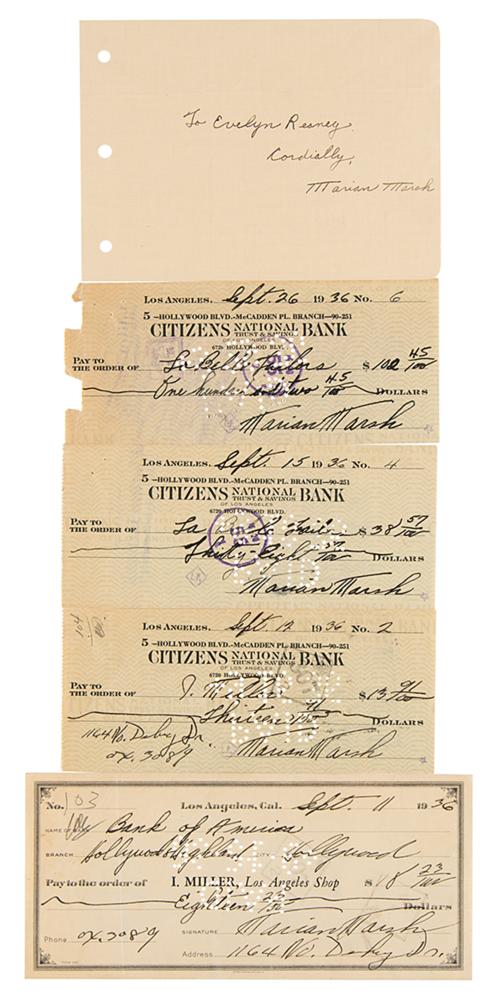 To Evelyn Reaney
Cordially,
Marian Marsh
LOS ANGELES, Sept. 26 1936 No. 6
5 -HOLLYWOOD BLVD.-McCADDEN PL. BRANCH-90-251
CITIZENS NATIONAL TRUST & SAVINGS BANK
OF LOS ANGELES
6720 HOLLYWOOD BLV.
PAY TO THE ORDER OF La Belle Tailors $ 102 45/100
One hundred and two 45/100 DOLLARS
Marian Marsh
LOS ANGELES, Sept. 15 1936 No. 4
5 -HOLLYWOOD BLVD.-McCADDEN PL. BRANCH-90-251
CITIZENS NATIONAL TRUST & SAVINGS BANK
OF LOS ANGELES
6720 HOLLYWOOD BLVD.
PAY TO THE ORDER OF La $ 38 57/100
Thirty-Eight 57/100 DOLLARS
Marian Marsh
104
LOS ANGELES, Sept. 12 1936 No. 2
5 -HOLLYWOOD BLVD.-McCADDEN PL. BRANCH-90-251
CITIZENS NATIONAL TRUST & SAVINGS BANK
OF LOS ANGELES
6720 HOLLYWOOD BLVD.
PAY TO THE ORDER OF I. Miller $ 13
Thirteen DOLLARS
1164 No. Doheny Dr.
OX. 3089
Marian Marsh
No. 103 Los Angeles, Cal. Sept. 11 1936
NAME OF BANK Bank of America
BRANCH Hollywood & Highland CITY Hollywood
Pay to the order of I. MILLER, Los Angeles Shop $ 18 23/100
Eighteen 23/100 Dollars
Phone OX. 3089 SIGNATURE Marian Marsh
Address 1164 No. Doheny Dr.